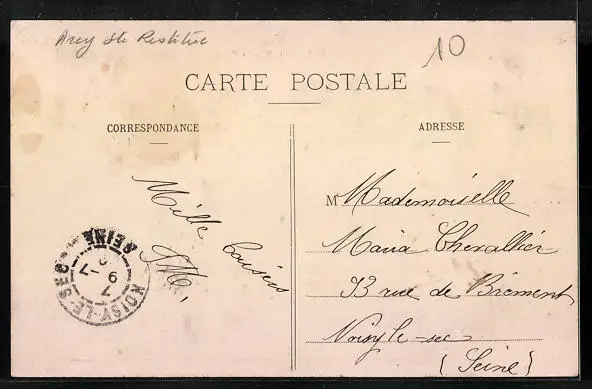 Arcy Ste Restitue
10
CARTE POSTALE
CORRESPONDANCE
ADRESSE
Mille
baisers
J.M.
M Mademoiselle
Maria Chevallier
93 rue de Brément
Noisy le-sec
(Seine)
NOISY-LE-SEC
SEINE
7
9 -7